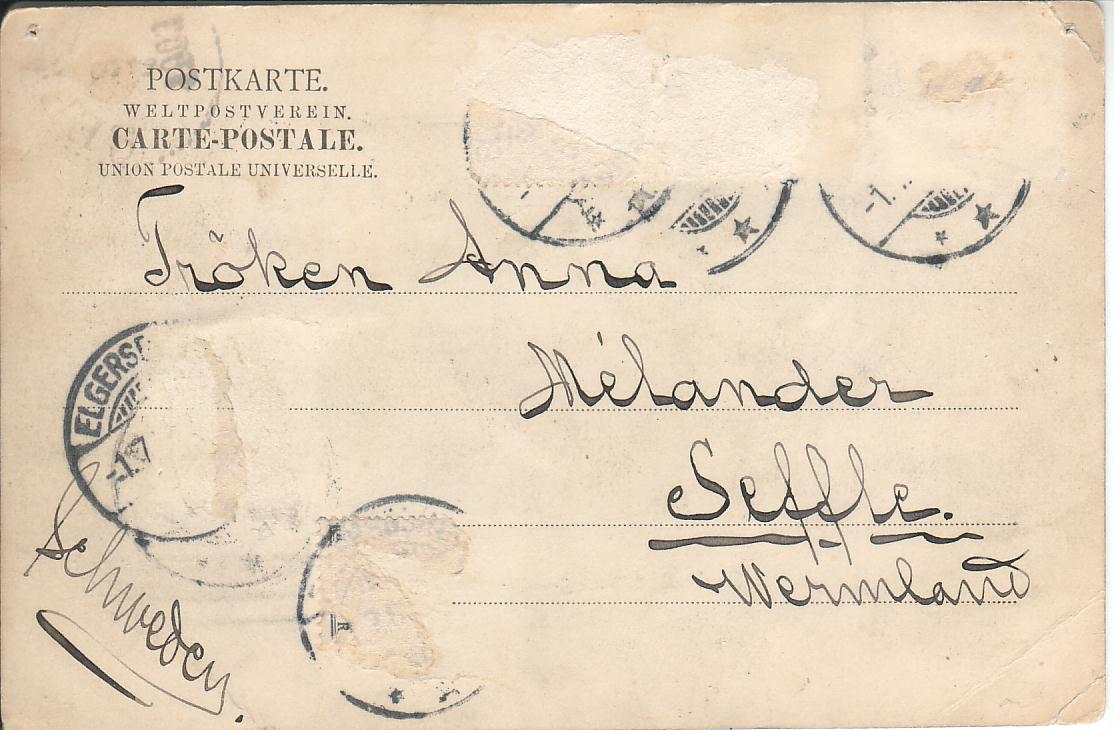 POSTKARTE.
WELTPOSTVEREIN.
CARTE-POSTALE.
UNION POSTALE UNIVERSELLE.
Fröken Anna
Mélander
Seffle.
Wermland
Schweden.
ELGERSB
-1.7
-1.